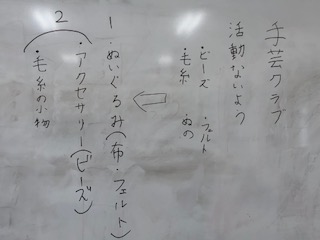 手芸クラブ
活動ないよう
・ビーズ ・フェルト
・毛糸 ・ぬの
1・ぬいぐるみ(布・フェルト)
2・アクセサリー(ビーズ)
・毛糸の小物